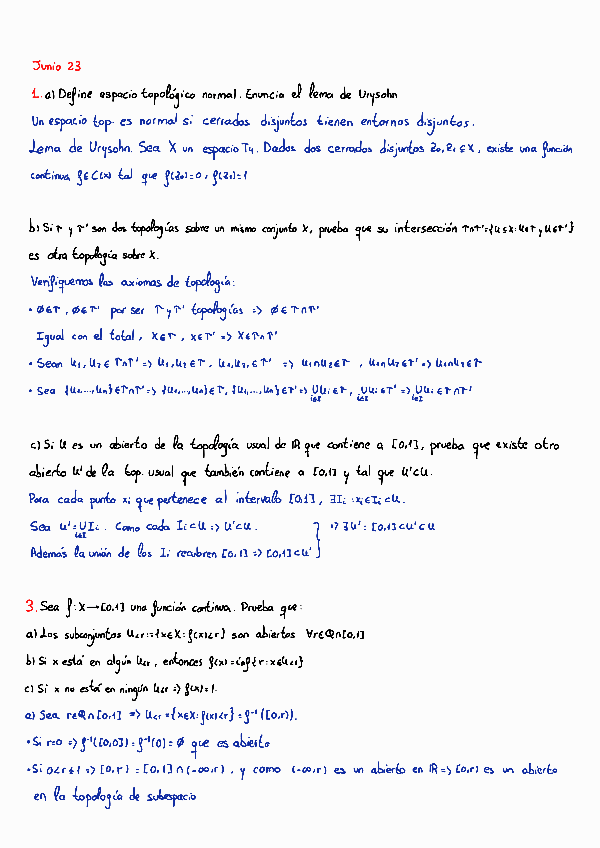 Junio 23
1. a) Define espacio topológico normal. Enuncia el lema de Urysohn
Un espacio top. es normal si cerrados disjuntos tienen entornos disjuntos.
Lema de Urysohn. Sea X un espacio T4. Dados dos cerrados disjuntos Z0, Z1 ⊆ X, existe una función
continua f ∈ C(X) tal que f(Z0)=0, f(Z1)=1
b) Si τ y τ' son dos topologías sobre un mismo conjunto X, prueba que su intersección τ∩τ'={U⊆X: U∈τ y U∈τ'}
es otra topología sobre X.
Verifiquemos los axiomas de topología:
• Ø∈τ, Ø∈τ' por ser τ y τ' topologías => Ø∈τ∩τ'
Igual con el total, X∈τ, X∈τ' => X∈τ∩τ'
• Sean U1, U2 ∈ τ∩τ' => U1, U2 ∈ τ, U1, U2, ∈ τ' => U1∩U2∈τ, U1∩U2∈τ' => U1∩U2∈τ∩τ'
• Sea {U1,...,Un}∈τ∩τ' => {U1,...,Un}∈τ, {U1,...,Un}∈τ' => ∪Ui∈τ, ∪Ui∈τ' => ∪Ui∈τ∩τ'
i∈I i∈I i∈I
c) Si U es un abierto de la topología usual de ℝ que contiene a [0,1], prueba que existe otro
abierto U' de la top. usual que también contiene a [0,1] y tal que U'⊂U.
Para cada punto xi que pertenece al intervalo [0,1], ∃Ii: xi∈Ii⊂U.
Sea U'=∪Ii. Como cada Ii⊂U => U'⊂U. => ∃U': [0,1]⊂U'⊂U
i∈I
Además la unión de los Ii recubren [0,1] => [0,1]⊂U'
3. Sea f: X→[0,1] una función continua. Prueba que:
a) Los subconjuntos U<r:={x∈X: f(x)<r} son abiertos ∀r∈ℚ∩[0,1]
b) Si x está en algún U<r, entonces f(x)=inf{r: x∈U<r}
c) Si x no está en ningún U<r => f(x)=1.
a) Sea r∈ℚ∩[0,1] => U<r={x∈X: f(x)<r} = f⁻¹([0,r)).
• Si r=0 => f⁻¹([0,0)) = f⁻¹(0) = Ø que es abierto
• Si 0<r≤1 => [0,r) = [0,1]∩(-∞,r), y como (-∞,r) es un abierto en ℝ => [0,r) es un abierto
en la topología de subespacio